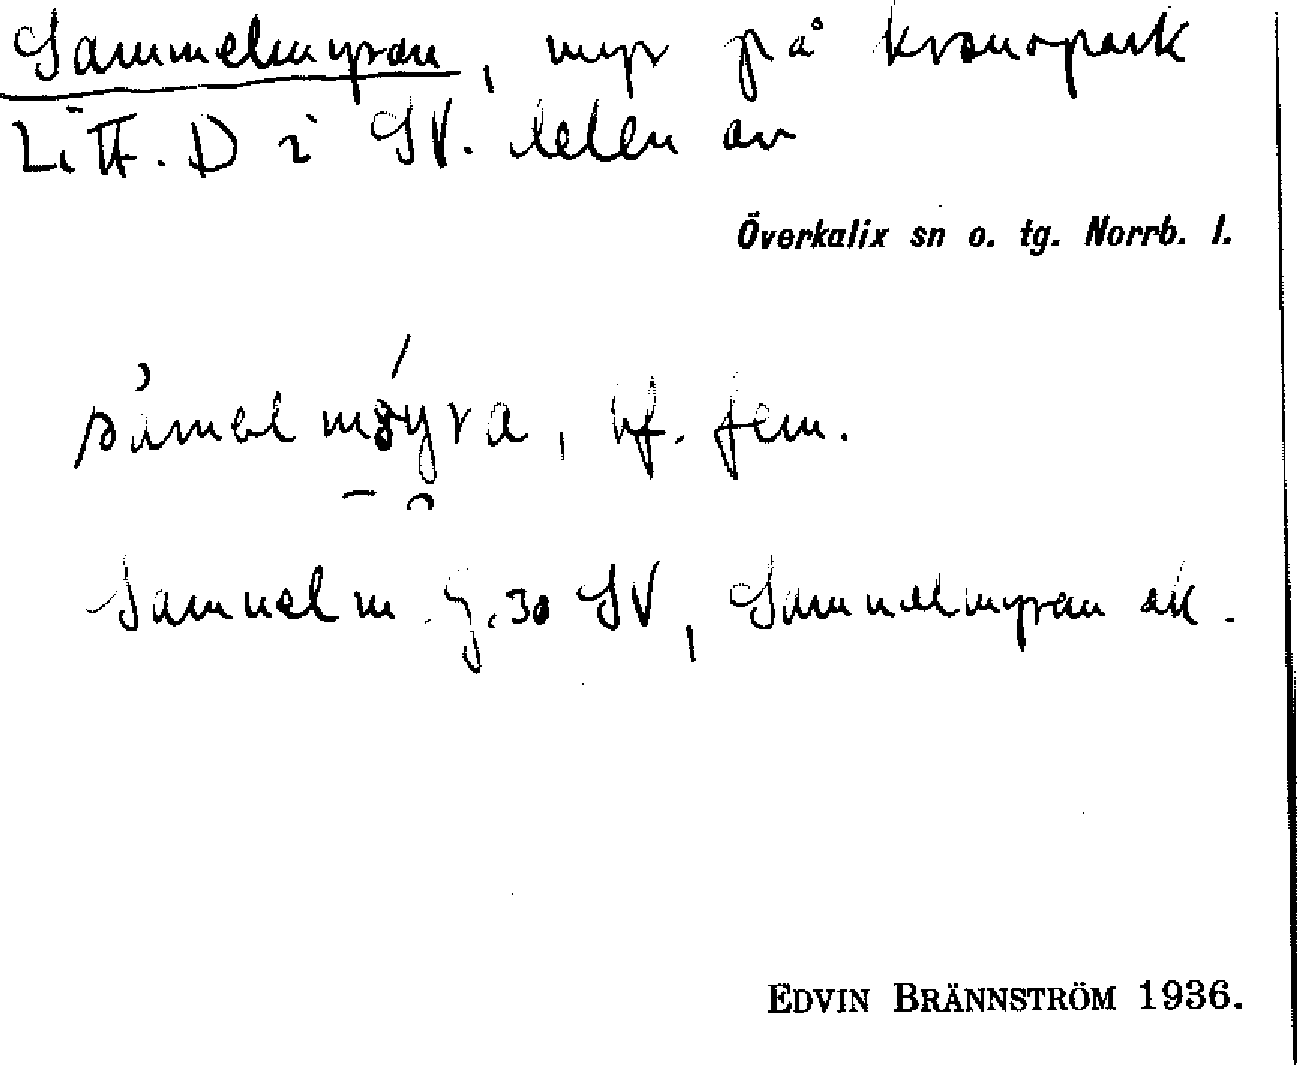 Sammelmyran, myr på kronopark
Litt. D i SV. delen av
Överkalix sn o. tg. Norrb. l.
sàmel møyra, bf. fem.
Sammelm. G.30 SV, Sammelmyran ek.
EDVIN BRÄNNSTRÖM 1936.